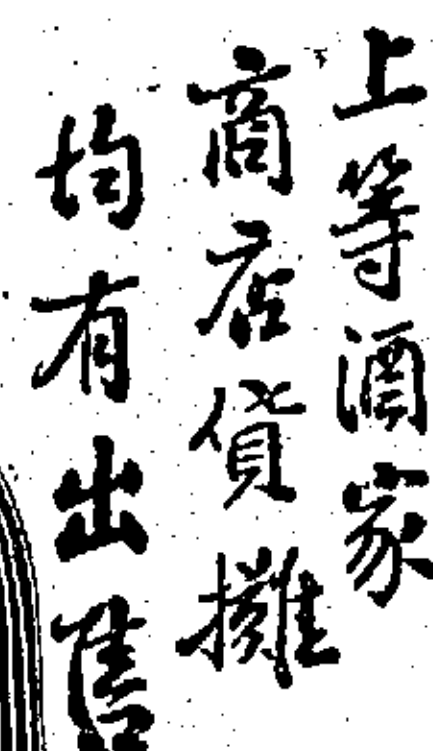 上等酒家
商店貨攤
均有出售